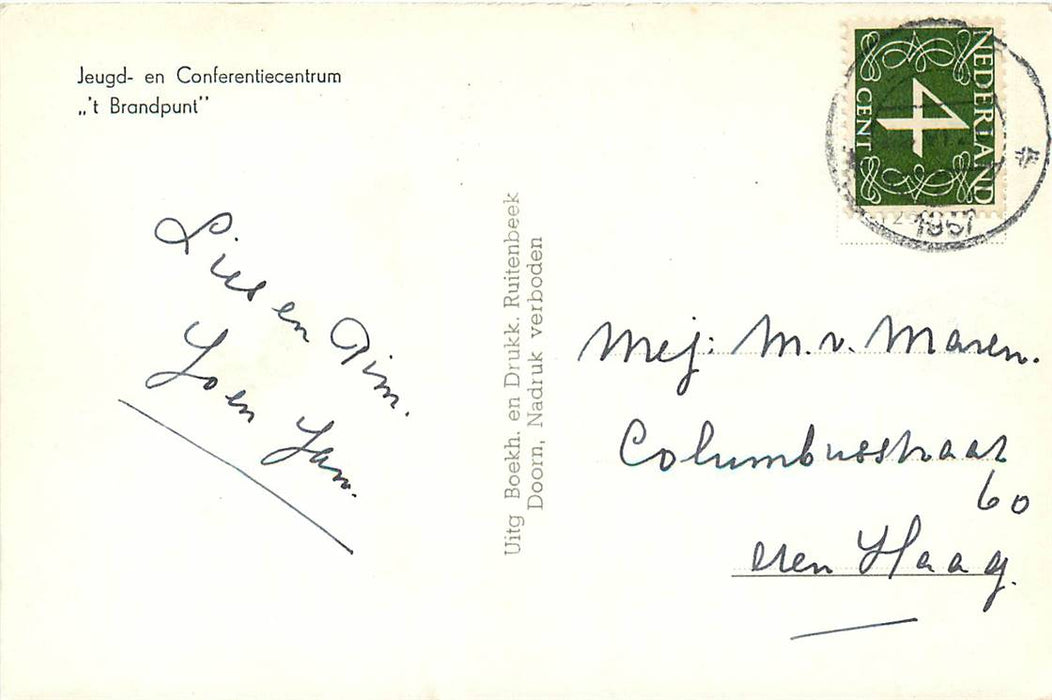 Jeugd- en Conferentiecentrum
„'t Brandpunt”
NEDERLAND
4
CENT
Lies en Pim.
Jo en Jan.
Uitg Boekh. en Drukk. Ruitenbeek
Doorn, Nadruk verboden
Mej: M. v. Maren.
Columbusstraat
60
Den Haag.